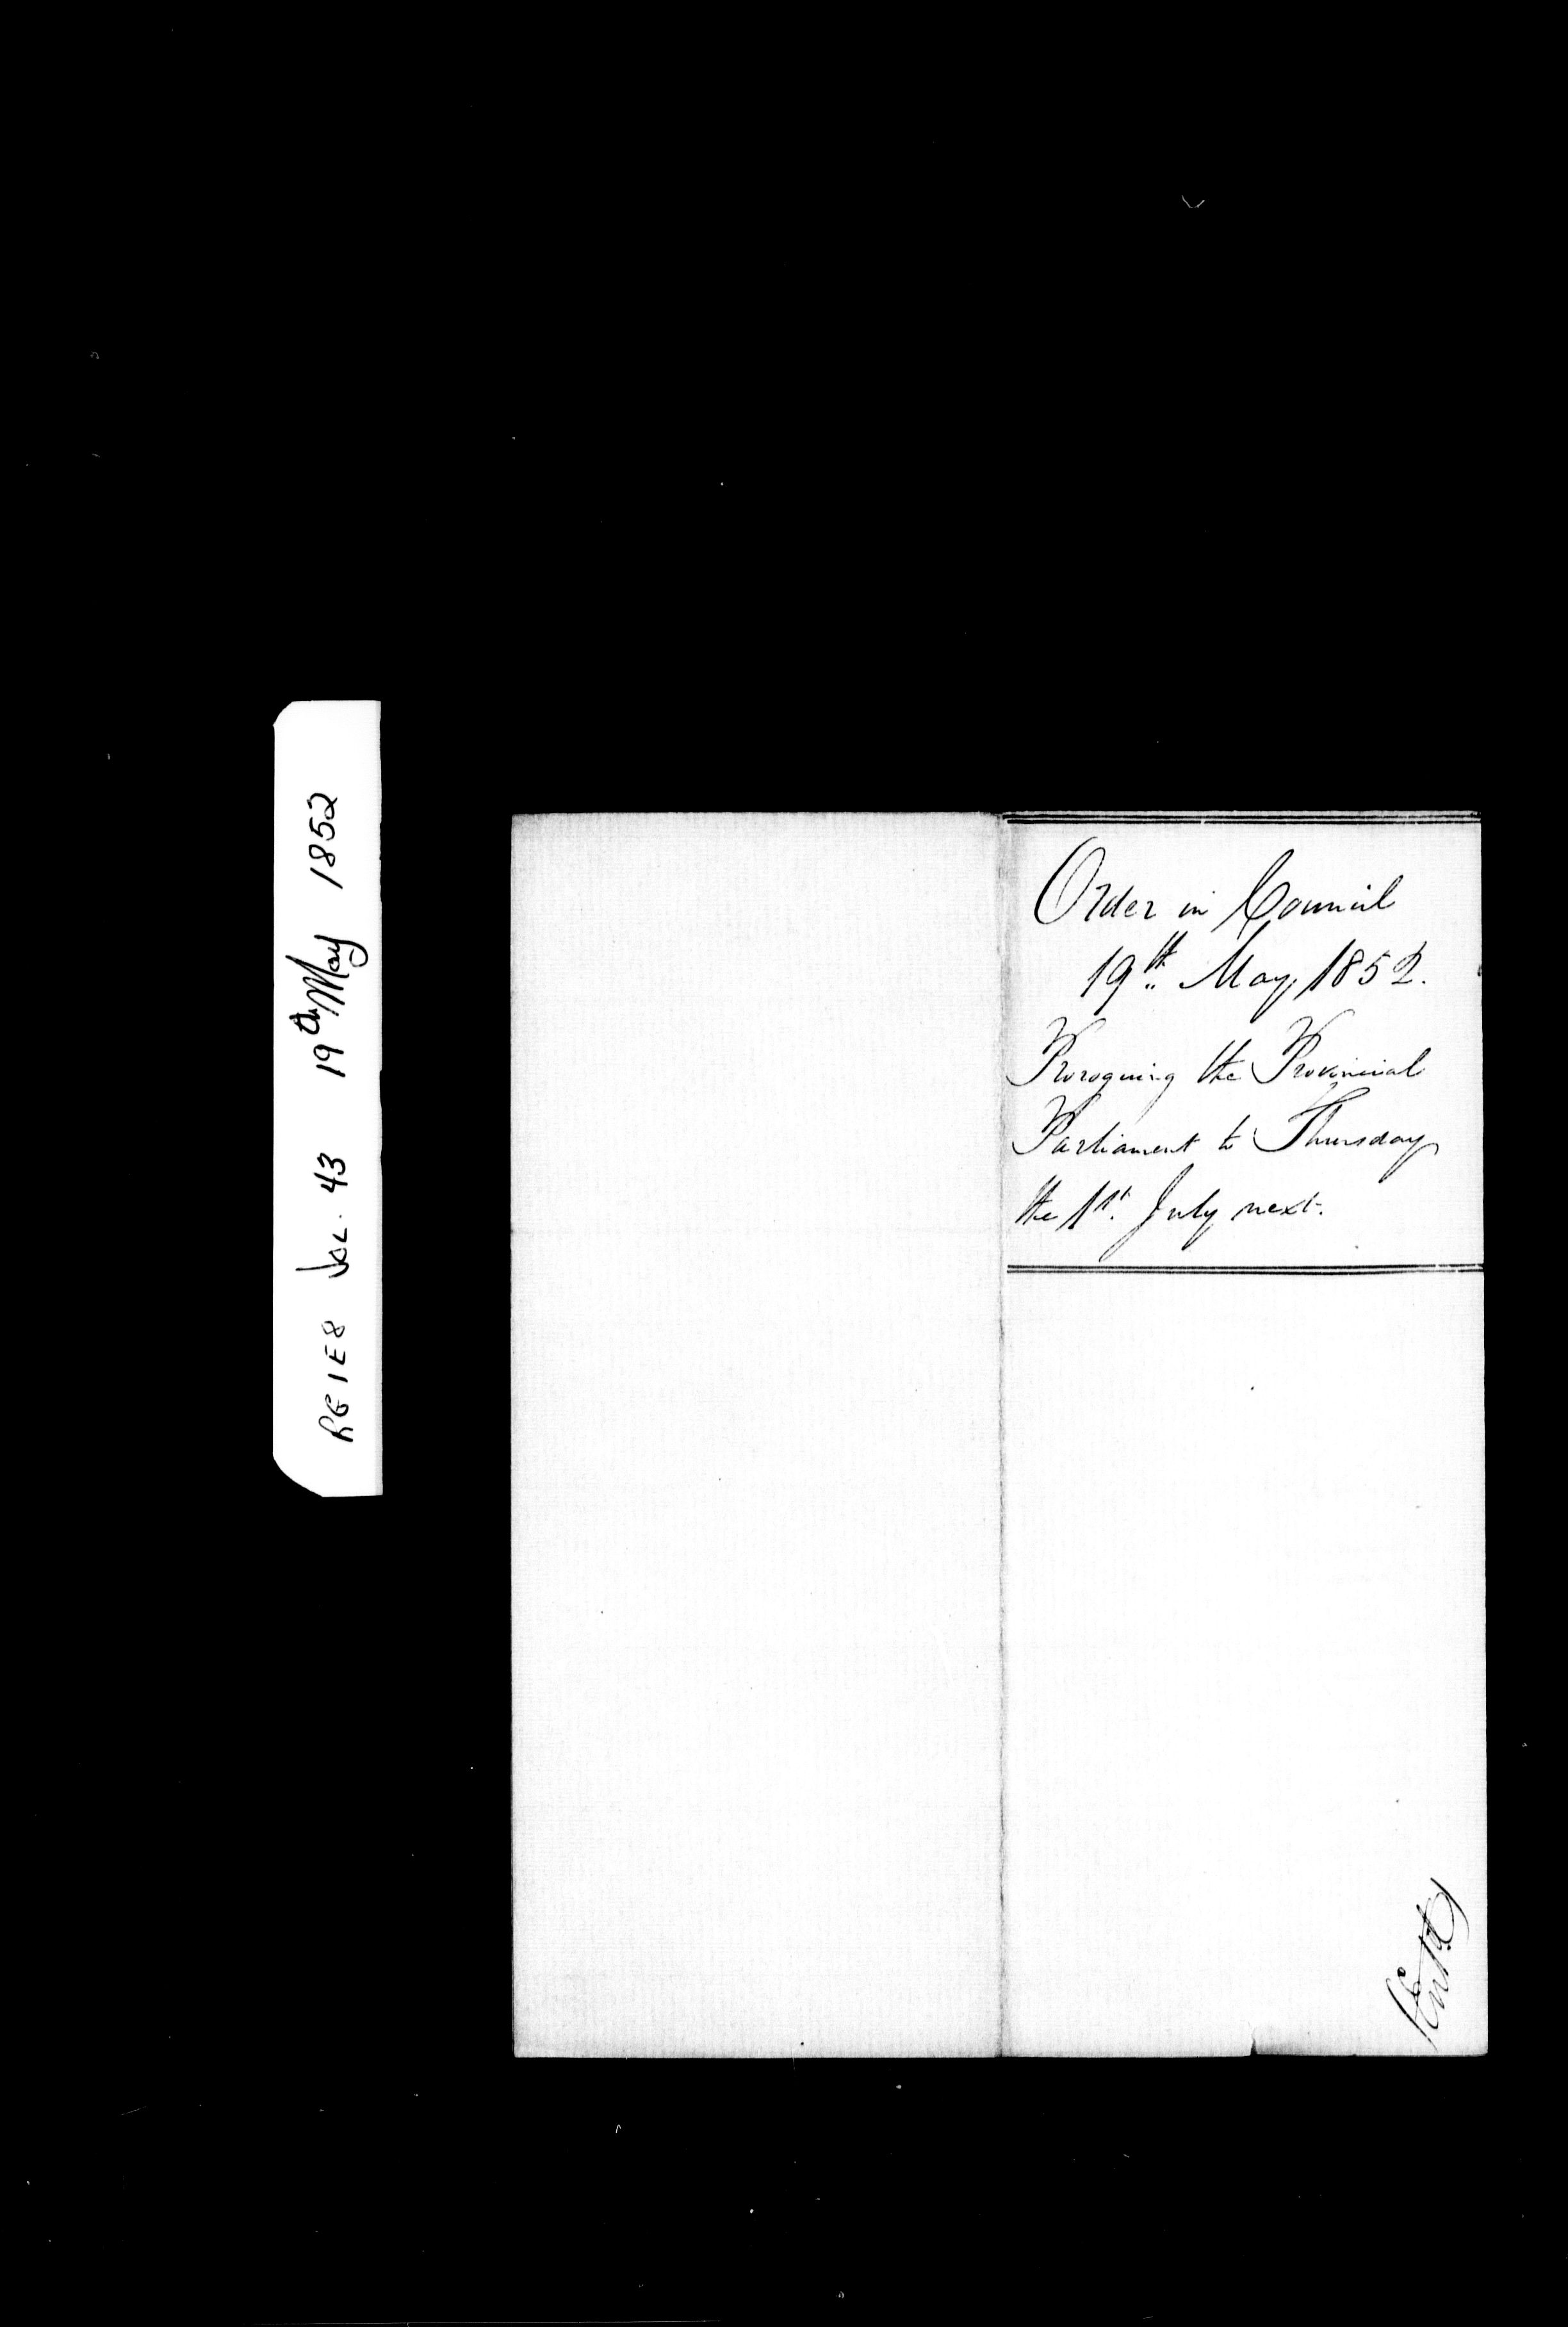 RG 1 E 8 Vol. 43 19th May 1852
Order in Council
19th May, 1852.
Proroguing the Provincial
Parliament to Thursday
the 1st. July next.